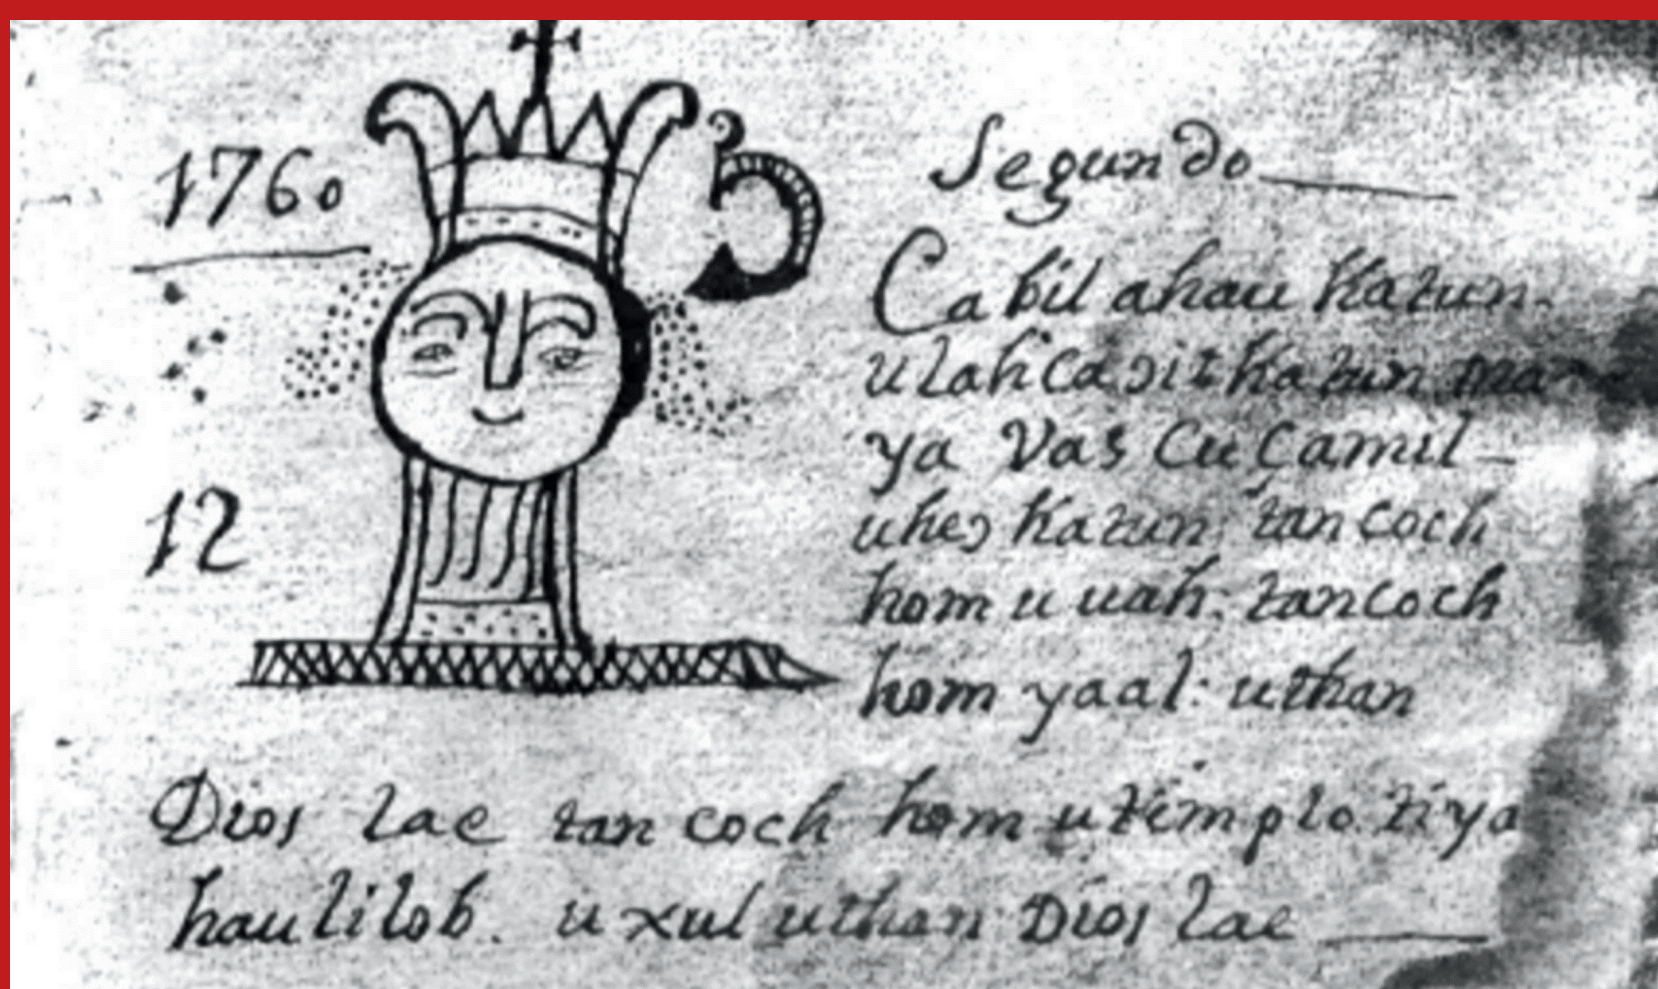 1760
12
Segundo
Cabil ahau Katun.
u lahca ɔit Katun ma
ya Vas Cuçamil
uheɔ Katun: tan coch
hom u uah: tancoch
hom yaal: uthan
Dios lae tan coch hom utemplo. ti ya
haulilob. u xul uthan Dios lae